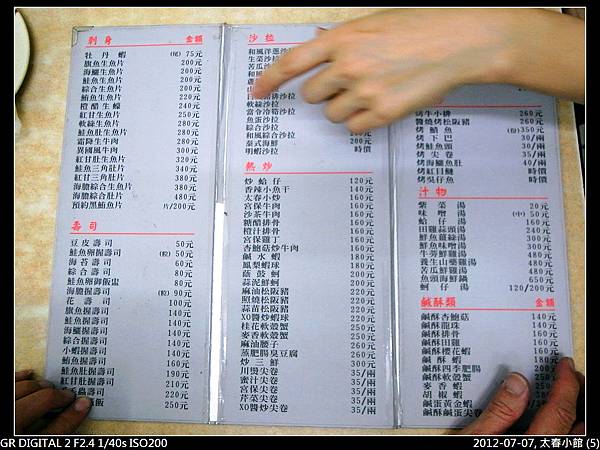 刺身 金額
牡丹蝦 (隻) 75元
旗魚生魚片 200元
海鱺生魚片 200元
鮭魚生魚片 200元
綜合生魚片 200元
鮪魚生魚片 220元
橙醋生蠔 240元
紅甘生魚片 250元
軟絲生魚片 280元
鮭魚肚生魚片 280元
霜降生牛肉 280元
異國風牛肉 300元
紅甘肚生魚片 320元
鮭魚三角肚片 340元
紅甘三角肚片 380元
海膽綜合生魚片 480元
海膽生魚片 380元
預約黑鮪魚片 片/200元
壽司
豆皮壽司 50元
鮭魚卵握壽司 (粒) 50元
海苔壽司 60元
綜合壽司 80元
鮭魚卵御飯 80元
海膽握壽司 (粒) 90元
花壽司 100元
旗魚握壽司 140元
鮭魚握壽司 140元
海鱺握壽司 140元
綜合握壽司 140元
小蝦握壽司 140元
鮪魚握壽司 160元
鮭魚肚握壽司 190元
紅甘肚握壽司 210元
220元
250元
沙拉
和風洋蔥沙拉
生菜沙拉
苦瓜沙拉
和風
軟絲沙拉
當令冷筍沙拉
魚蛋沙拉
綜合沙拉
和風綜合沙拉
泰式海鮮 200元
明蝦沙拉 時價
熱炒
炒蛤仔 120元
香辣小魚干 140元
太春小炒 160元
宮保牛肉 160元
沙茶牛肉 160元
糖醋排骨 160元
橙汁排骨 160元
宮保雞丁 160元
杏鮑菇炒牛肉 160元
鹹水蝦 180元
鳳梨蝦球 180元
蔭豉蚵 200元
蒜泥鮮蚵 200元
麻油松阪豬 220元
照燒松阪豬 220元
蒜苗松阪豬 220元
XO醬炒蝦球 220元
桂花軟殼蟹 250元
麥香軟殼蟹 250元
麻油腰子 260元
蒸肥腸臭豆腐 260元
炒三鮮 300元
川燙尖卷 35/兩
蜜汁尖卷 35/兩
宮保尖卷 35/兩
芹菜尖卷 35/兩
XO醬炒尖卷 35/兩
烤牛小排 260元
醬燒烤松阪豬 260元
烤鯖魚 (份) 350元
烤下巴 30/兩
烤鮭魚頭 30/兩
烤尖卷 35/兩
烤海鱺魚肚 40/兩
烤紅目鰱 時價
烤吳仔魚 時價
汁物
紫菜湯 50元
味噌湯 (中) 20元
蛤仔湯 160元
田雞蒜頭湯 240元
鮮魚薑絲湯 300元
鮮魚味噌湯 300元
牛蒡鮮雞湯 450元
養生山藥雞湯 450元
苦瓜鮮雞湯 450元
魚頭海鮮鍋 650元
蚵仔湯 120/200元
鹹酥類 金額
鹹酥杏鮑菇 140元
鹹酥龍珠 140元
鹹酥排骨 160元
鹹酥田雞 160元
鹹酥櫻花蝦 160元
鹹酥蝦 180元
鹹酥四季肥腸 200元
鹹酥軟殼蟹 250元
麥香蝦 250元
胡椒蝦
鹹蛋黃金蝦
鹹酥鹹蛋尖卷
GR DIGITAL 2 F2.4 1/40s ISO200
2012-07-07, 太春小館 (5)